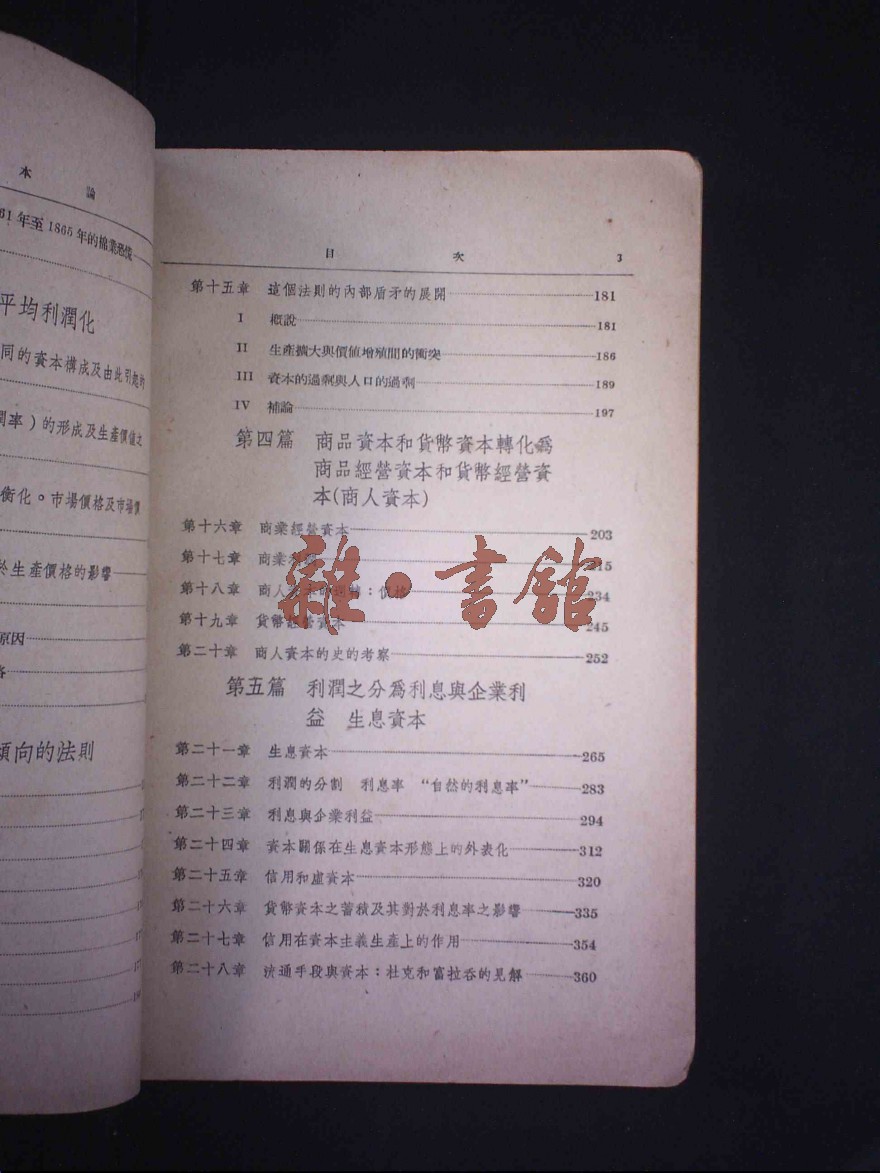 本 論
61年至1865年的棉業恐慌
平均利潤化
同的資本構成及由此引起的
潤率)的形成及生產價值之
衡化。市場價格及市場價
於生產價格的影響
原因
傾向的法則
目 次 3
第十五章 這個法則的內部盾矛的展開 181
I 概說 181
II 生產擴大與價值增殖間的衝突 186
III 資本的過剩與人口的過剩 189
IV 補論 197
第四篇 商品資本和貨幣資本轉化爲
商品經營資本和貨幣經營資
本(商人資本)
第十六章 商業經營資本 203
第十七章 商業利潤 215
第十八章 商人資本的週轉:價格 234
第十九章 貨幣經營資本 245
第二十章 商人資本的史的考察 252
雜·書館
第五篇 利潤之分爲利息與企業利
益 生息資本
第二十一章 生息資本 265
第二十二章 利潤的分割 利息率 “自然的利息率” 283
第二十三章 利息與企業利益 294
第二十四章 資本關係在生息資本形態上的外表化 312
第二十五章 信用和虛資本 320
第二十六章 貨幣資本之蓄積及其對於利息率之影響 335
第二十七章 信用在資本主義生產上的作用 354
第二十八章 流通手段與資本:杜克和富拉吞的見解 360